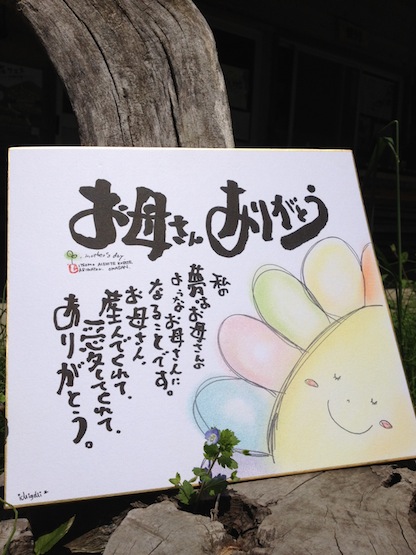 お母さん ありがとう
mother's day
私の
夢はお母さんの
ような お母さんに
なることです。
お母さん
産んでくれて、
愛してくれて、
ありがとう。